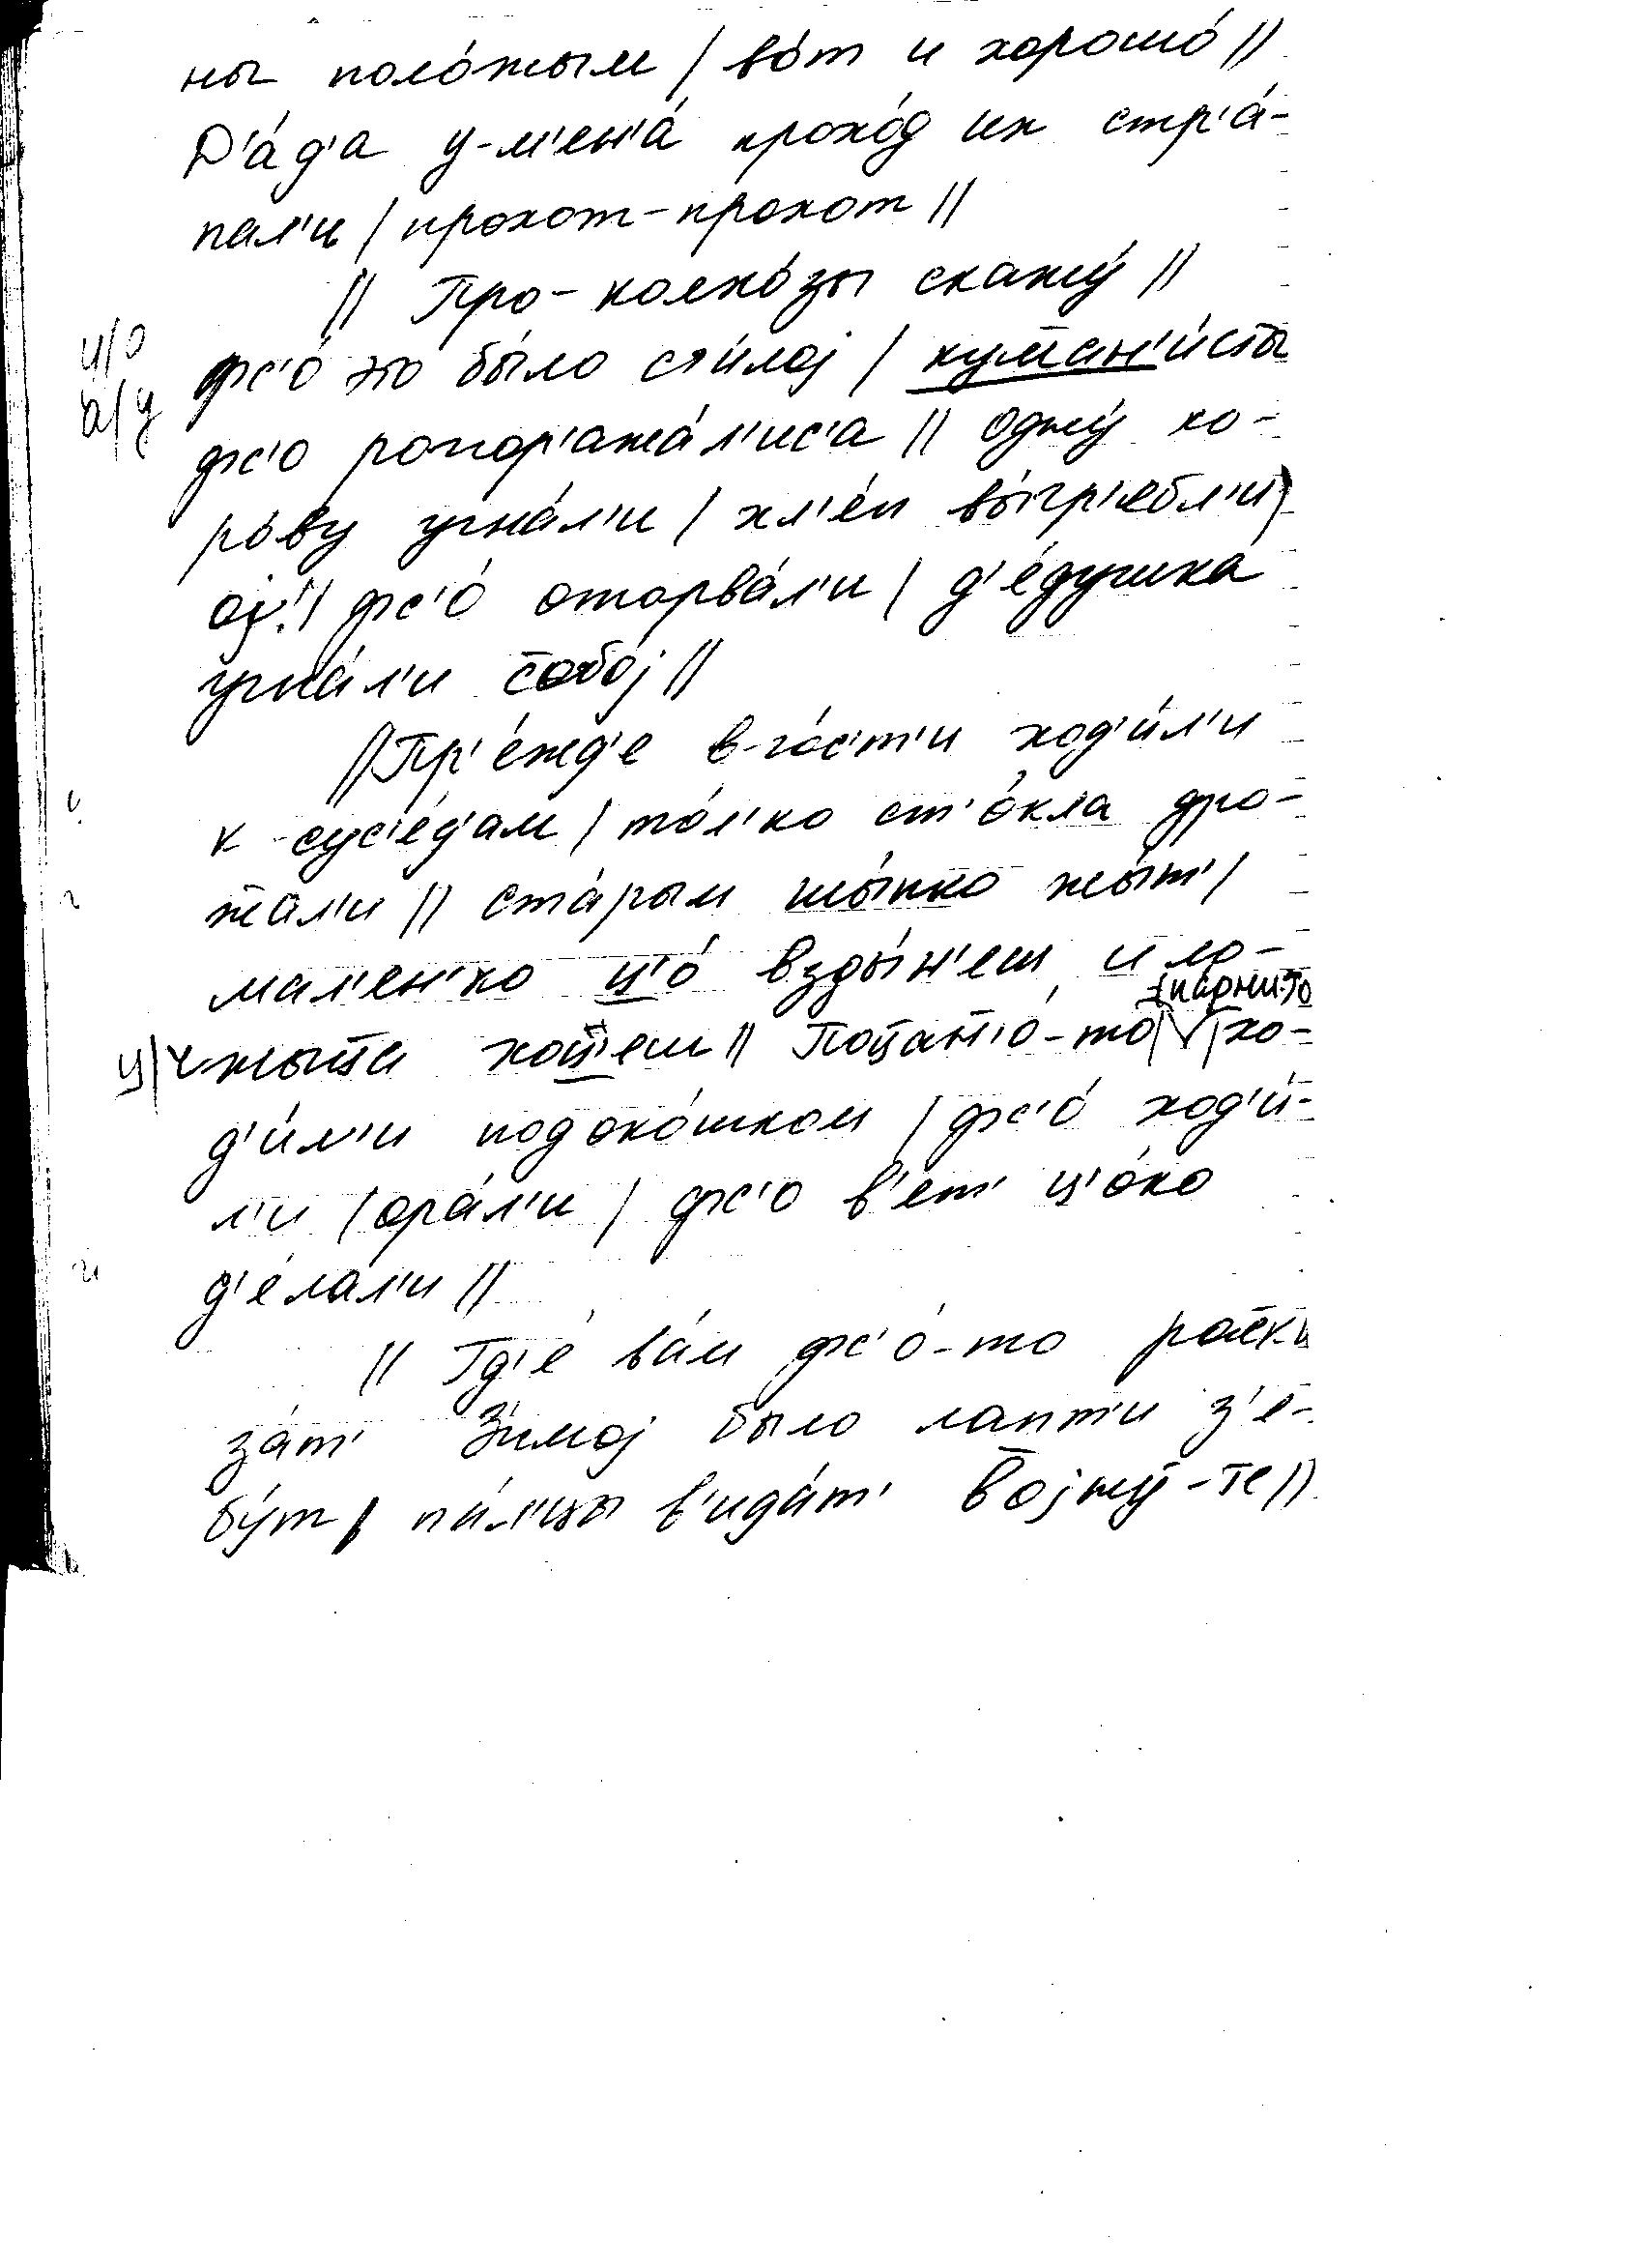 ны поло́жым / во́т и хорошо́ //
Д'а́д'а у-м'ен'а́ крохо́д их стр'а́-
пал'и / крохот-крохот //
// Про-колхо́зы скажу́ //
и/о
фс'о́ это бы́ло си́лој / куман'и́сты
а/у
фс'о роспор'ажа́л'ис'а // одну́ ко-
ро́ву угна́л'и / хл'е́п вы́гр'ебл'и /
ој! / фс'о́ оторва́л'и / д'е́душка
угна́л'и собо́ј //
// Пр'е́жд'е в-го́с'т'и ход'и́л'и
к сус'е́д'ам / то́л'ко ст'о́кла дро-
жал'и // ста́рым шы́пко жы́т' /
мал'ен'ко ц'о́ взды́н'еш и ло-
/ парни-то
ц/ч жыцца хоц'еш // Поцан'о́-то / V / хо-
д'и́л'и подоко́шком / фс'о́ ход'и́-
л'и / ора́л'и / фс'о в'ет' ц'о́ко
д'е́лал'и //
// Гд'е́ ва́м фс'о́-то расска
за́т' З'имој было лапт'и з'е-
бу́т / па́л'цы в'ида́т' Војну́-те //